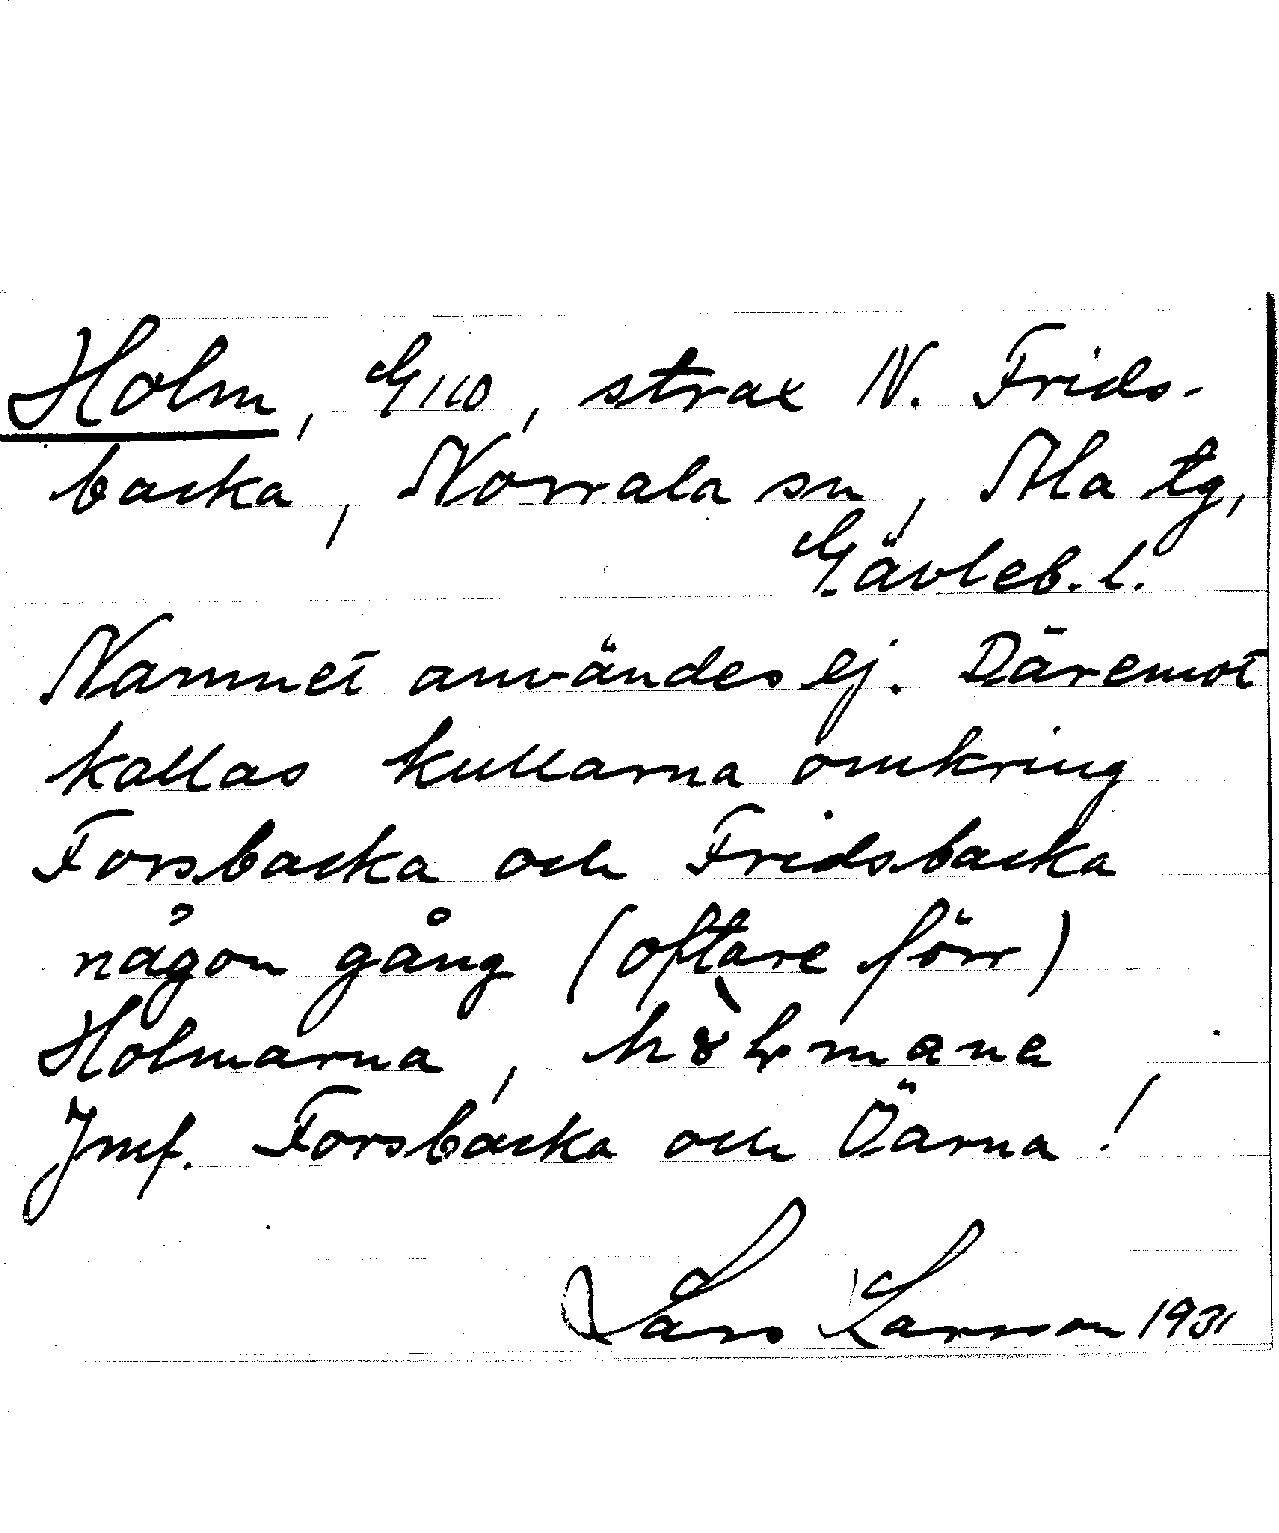 Holm, G110, strax N. Frids-
backa, Norrala sn, Ala tg,
Gävleb. l.
Namnet användes ej. Däremot
kallas kullarna omkring
Forsbacka och Fridsbacka
någon gång (oftare förr)
Holmarna,
Jmf. Forsbacka och Öarna!
Lars Larsson 1931